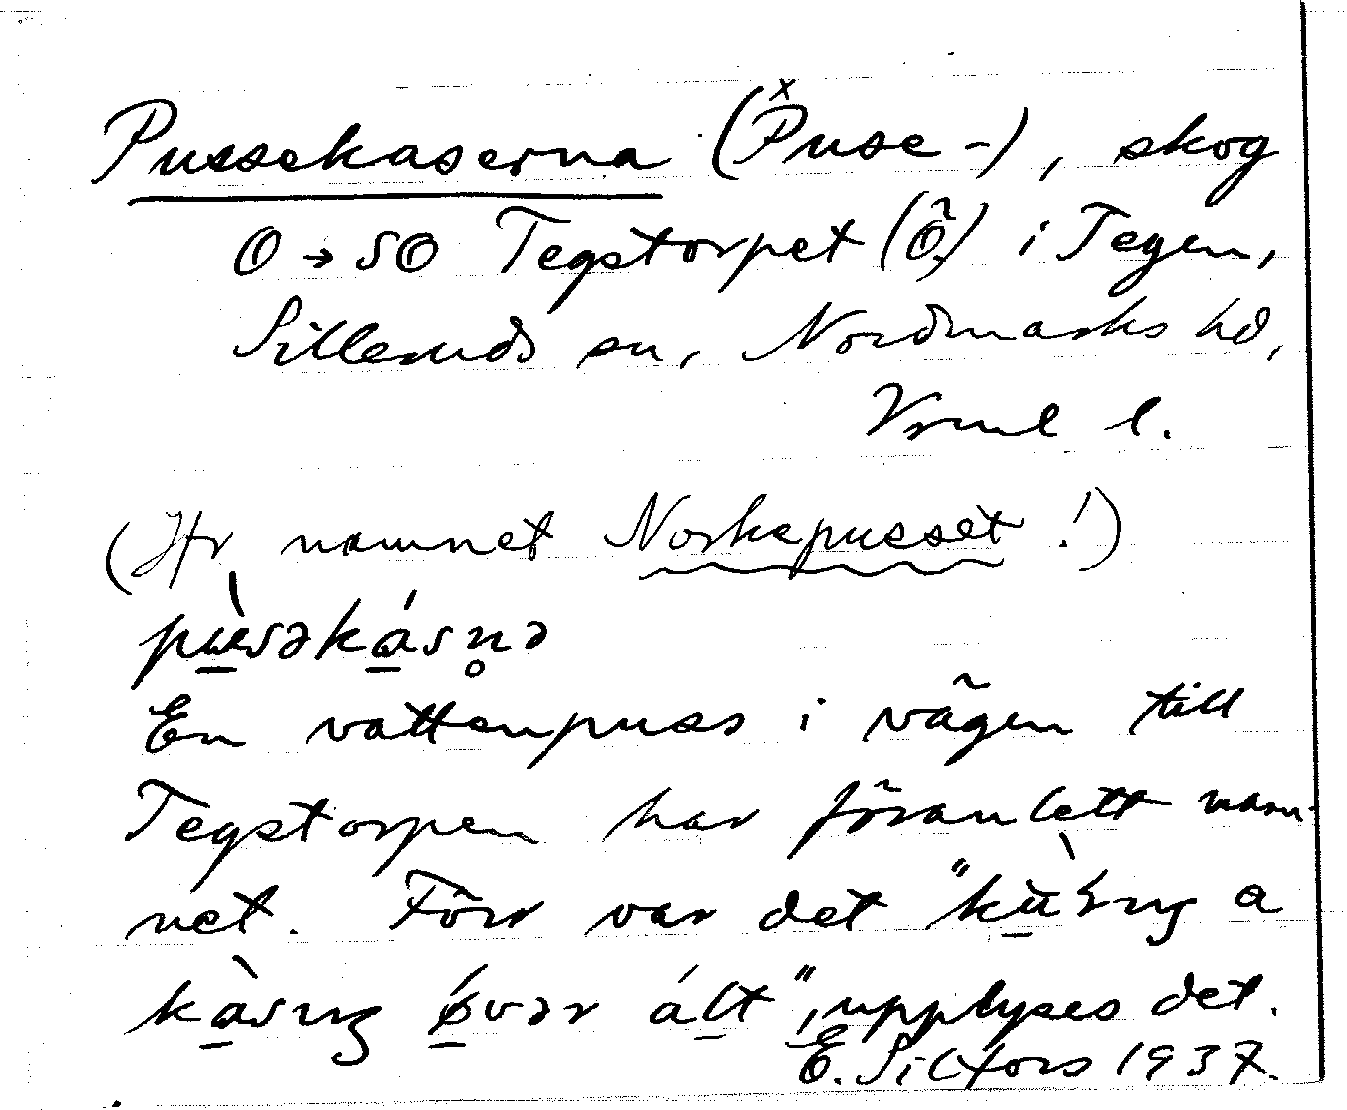 Pussekaserna (Puse-), skog
O → SO Tegstorpet (Ö) i Tegen,
Silleruds sn, Nordmarks hd,
Vrml l.
(Jfr namnet Norkepusset!)
pùsəkásn̥ə
En vattenpuss i vägen till
Tegstorpen har föranlett nam-
net. Förr var det "
a
upplyses det.
E. Silfors 1937.